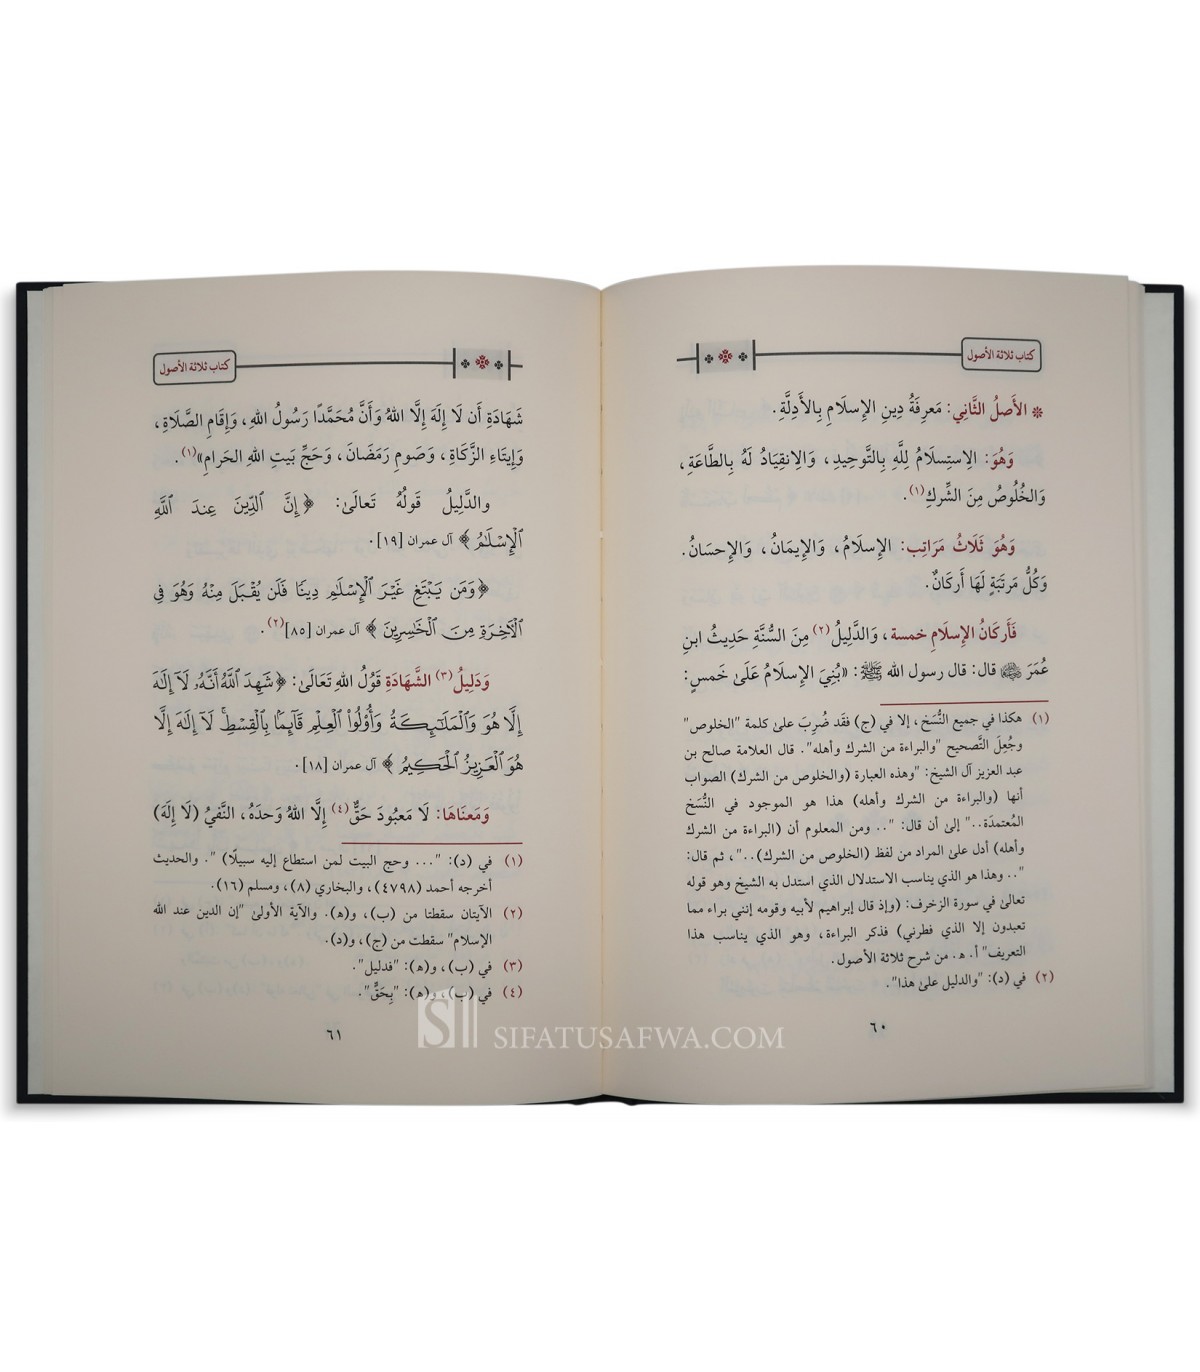 كتاب ثلاثة الأصول
❊ الأَصلُ الثَّانِي: مَعرِفَةُ دِينِ الإِسلَامِ بِالأَدِلَّةِ.
وَهُوَ: الِاستِسلَامُ لِلَّهِ بِالتَّوحِيدِ، وَالِانقِيَادُ لَهُ بِالطَّاعَةِ،
وَالخُلُوصُ مِنَ الشِّركِ(١).
وَهُوَ ثَلَاثُ مَرَاتِب: الإِسلَامُ، وَالإِيمَانُ، وَالإِحسَانُ.
وَكُلُّ مَرتَبَةٍ لَهَا أَركَانٌ.
فَأَركَانُ الإِسلَامِ خمسة، وَالدَّلِيلُ(٢) مِنَ السُّنَّةِ حَدِيثُ ابنِ
عُمَرَ ﵁ قال: قال رسول الله ﷺ: «بُنِيَ الإِسلَامُ عَلَىٰ خَمسٍ:
(١) هكذا في جميع النُّسَخ، إلا في (ج) فقَد ضُرِبَ علىٰ كلمة "الخلوص"
وجُعِلَ التَّصحيح "والبراءة من الشرك وأهله". قال العلامة صالح بن
عبد العزيز آل الشيخ: "وهذه العبارة (والخلوص من الشرك) الصواب
أنها (والبراءة من الشرك وأهله) هذا هو الموجود في النُّسَخ
المُعتمدَة.." إلىٰ أن قال: ".. ومن المعلوم أن (البراءة من الشرك
وأهله) أدل علىٰ المراد من لفظ (الخلوص من الشرك)..."، ثم قال:
".. وهذا هو الذي يناسب الاستدلال الذي استدل به الشيخ وهو قوله
تعالىٰ في سورة الزخرف: (وإذ قال إبراهيم لأبيه وقومه إنني براء مما
تعبدون إلا الذي فطرني) فذكر البراءة، وهو الذي يناسب هذا
التعريف" أ. هـ. من شرح ثلاثة الأصول.
(٢) في (د): "والدليل علىٰ هذا".
٦٠
كتاب ثلاثة الأصول
شَهَادَةِ أَن لَا إِلَهَ إِلَّا اللهُ وَأَنَّ مُحَمَّدًا رَسُولُ اللهِ، وَإِقَامِ الصَّلَاةِ،
وَإِيتَاءِ الزَّكَاةِ، وَصَومِ رَمَضَانَ، وَحَجِّ بَيتِ اللهِ الحَرامِ»(١).
والدَّلِيلُ قَولُهُ تَعَالَىٰ: ﴿إِنَّ ٱلدِّينَ عِندَ ٱللَّهِ
ٱلْإِسْلَٰمُ﴾ آل عمران [١٩].
﴿وَمَن يَبْتَغِ غَيْرَ ٱلْإِسْلَٰمِ دِينًا فَلَن يُقْبَلَ مِنْهُ وَهُوَ فِى
ٱلْآخِرَةِ مِنَ ٱلْخَٰسِرِينَ﴾ آل عمران [٨٥](٢).
وَدَلِيلُ(٣) الشَّهَادَةِ قَولُ اللهِ تَعَالَىٰ: ﴿شَهِدَ ٱللَّهُ أَنَّهُۥ لَآ إِلَٰهَ
إِلَّا هُوَ وَٱلْمَلَٰٓئِكَةُ وَأُو۟لُوا۟ ٱلْعِلْمِ قَآئِمًۢا بِٱلْقِسْطِ ۚ لَآ إِلَٰهَ إِلَّا
هُوَ ٱلْعَزِيزُ ٱلْحَكِيمُ﴾ آل عمران [١٨].
وَمَعنَاهَا: لَا مَعبُودَ حَقٌّ(٤) إِلَّا اللهُ وَحدَهُ، النَّفيُ (لَا إِلَهَ)
(١) في (د): "... وحج البيت لمن استطاع إليه سبيلًا) ". والحديث
أخرجه أحمد (٤٧٩٨)، والبخاري (٨)، ومسلم (١٦).
(٢) الآيتان سقطتا من (ب)، و(ه). والآية الأولىٰ "إن الدين عند الله
الإسلام" سقطت من (ج)، و(د).
(٣) في (ب)، و(ه): "فدليل".
(٤) في (ب)، و(ه): "بِحَقٍّ".
٦١
SIFATUSAFWA.COM